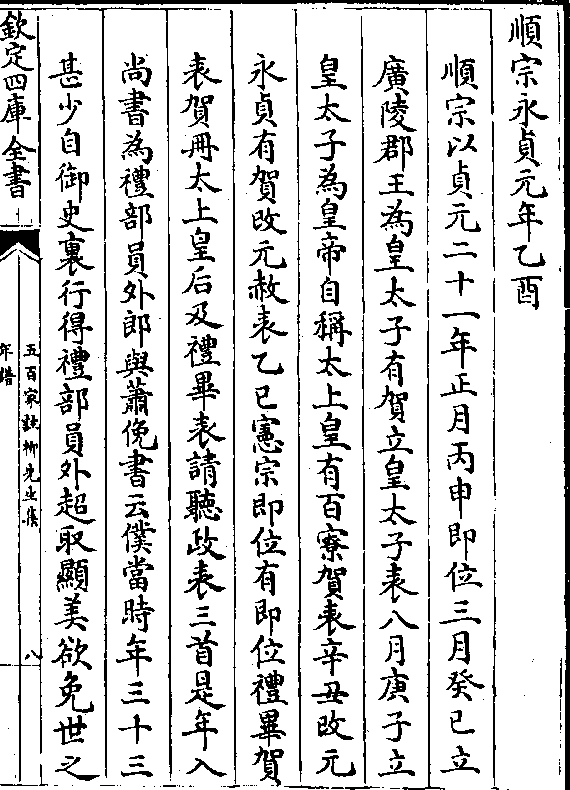 順宗永貞元年乙酉
順宗以貞元二十一年正月丙申即位三月癸巳立
廣陵郡王為皇太子有賀立皇太子表八月庚子立
皇太子為皇帝自稱太上皇有百寮賀表辛丑改元
永貞有賀改元赦表乙巳憲宗即位有即位禮畢賀
表賀冊太上皇后及禮畢表請聽政表三首是年入
尚書為禮部員外郎與蕭俛書云僕當時年三十三
甚少自御史裏行得禮部員外超取顯美欲免世之
欽定四庫全書
五百家註柳先生集
年譜
八